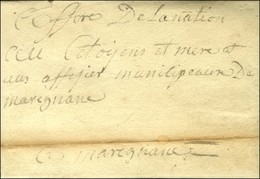 Effere De Lanation
Au Citoyens et mere et
aus offisier munilipeaux De
maregnane
a maregnane